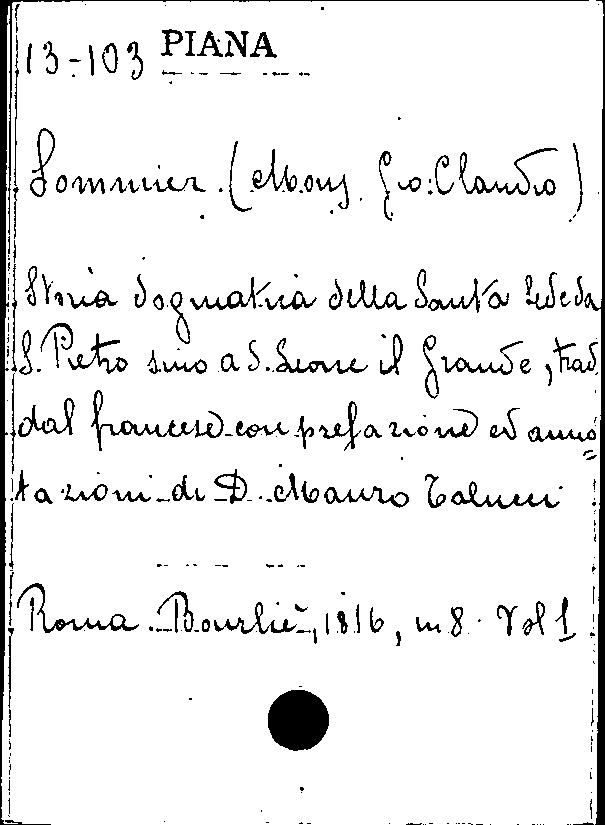 13-103 PIANA
Sommier (Mons. Gio: Claudio)
Storia dogmatica della Santa Sede da
S. Pietro sino a S. Leone il Grande, trad.
dal francese con prefazione ed anno=
tazioni di D. Mauro Talucci
Roma Bourliè, 1816, in 8. Vol 1